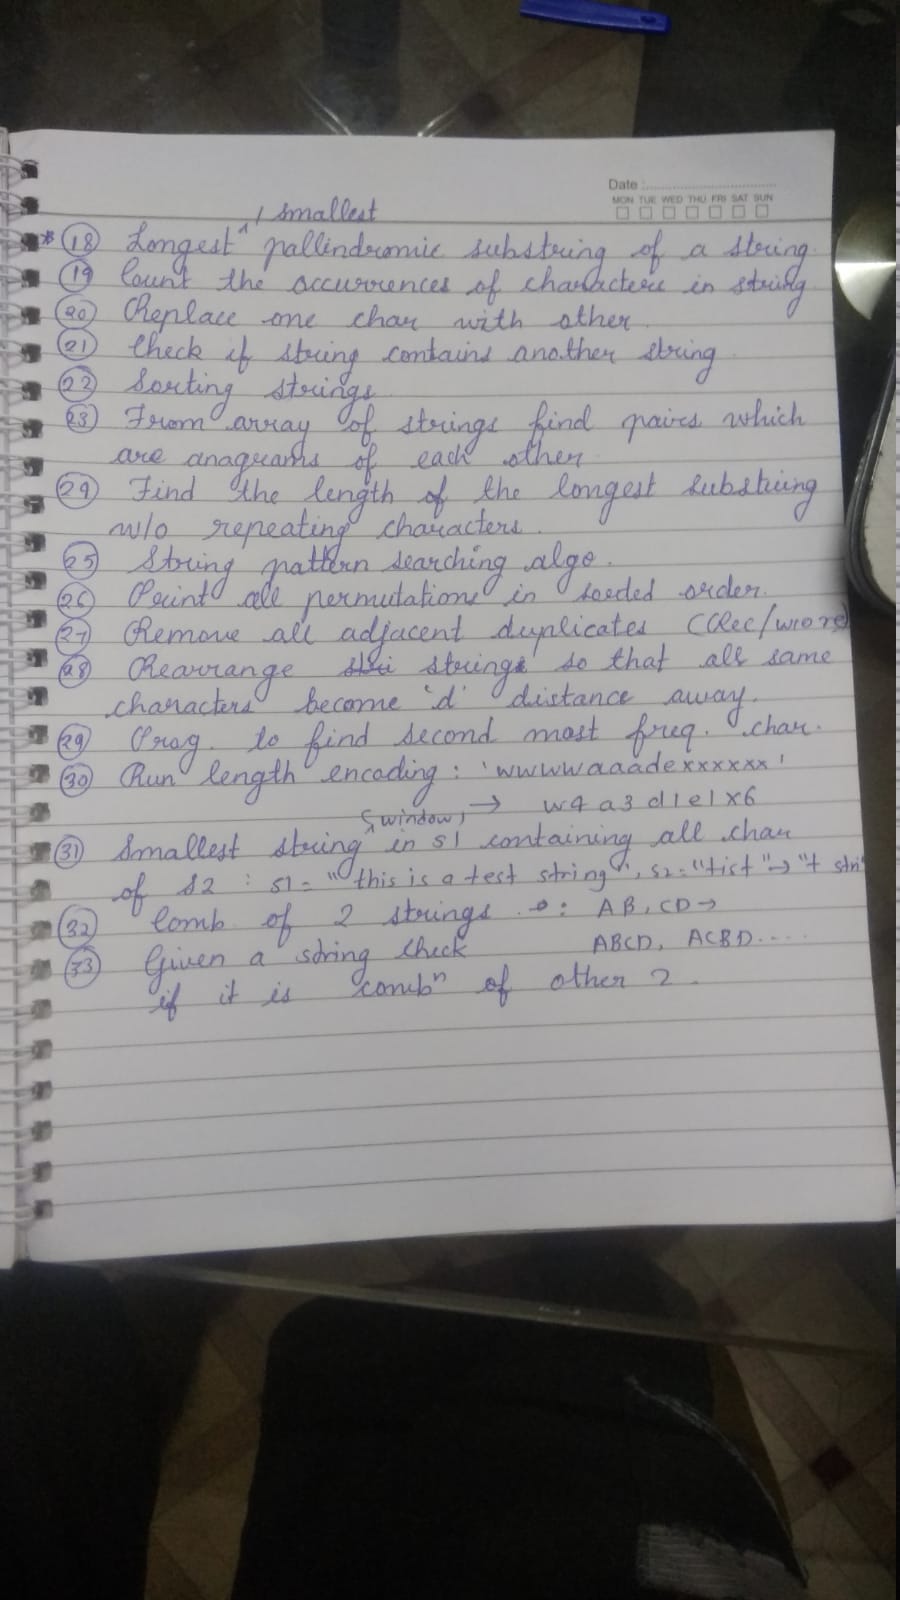 Date :
MON TUE WED THU FRI SAT SUN
/ smallest
* 18 Longest ^ pallindromic substring of a string
19 Count the occurrences of characters in string
20 Replace one char with other
21 Check if string contains another string
22 Sorting strings
23 From array of strings find pairs which
are anagrams of each other
24 Find the length of the longest substring
w/o repeating characters.
25 String pattern searching algo.
26 Print all permutations in sorted order.
27 Remove all adjacent duplicates (Rec/w/o re)
28 Rearrange strings so that all same
characters become 'd' distance away.
29 Prog. to find second most freq. char.
30 Run length encoding : 'wwwwaaadexxxxxx'
→ w4a3d1e1x6
(window)
31 Smallest string ^ in s1 containing all char
of s2 : s1 = "this is a test string", s2 = "tist" → "t stri
32 Comb of 2 strings : AB, CD →
ABCD, ACBD....
33 Given a string check
if it is combⁿ of other 2.